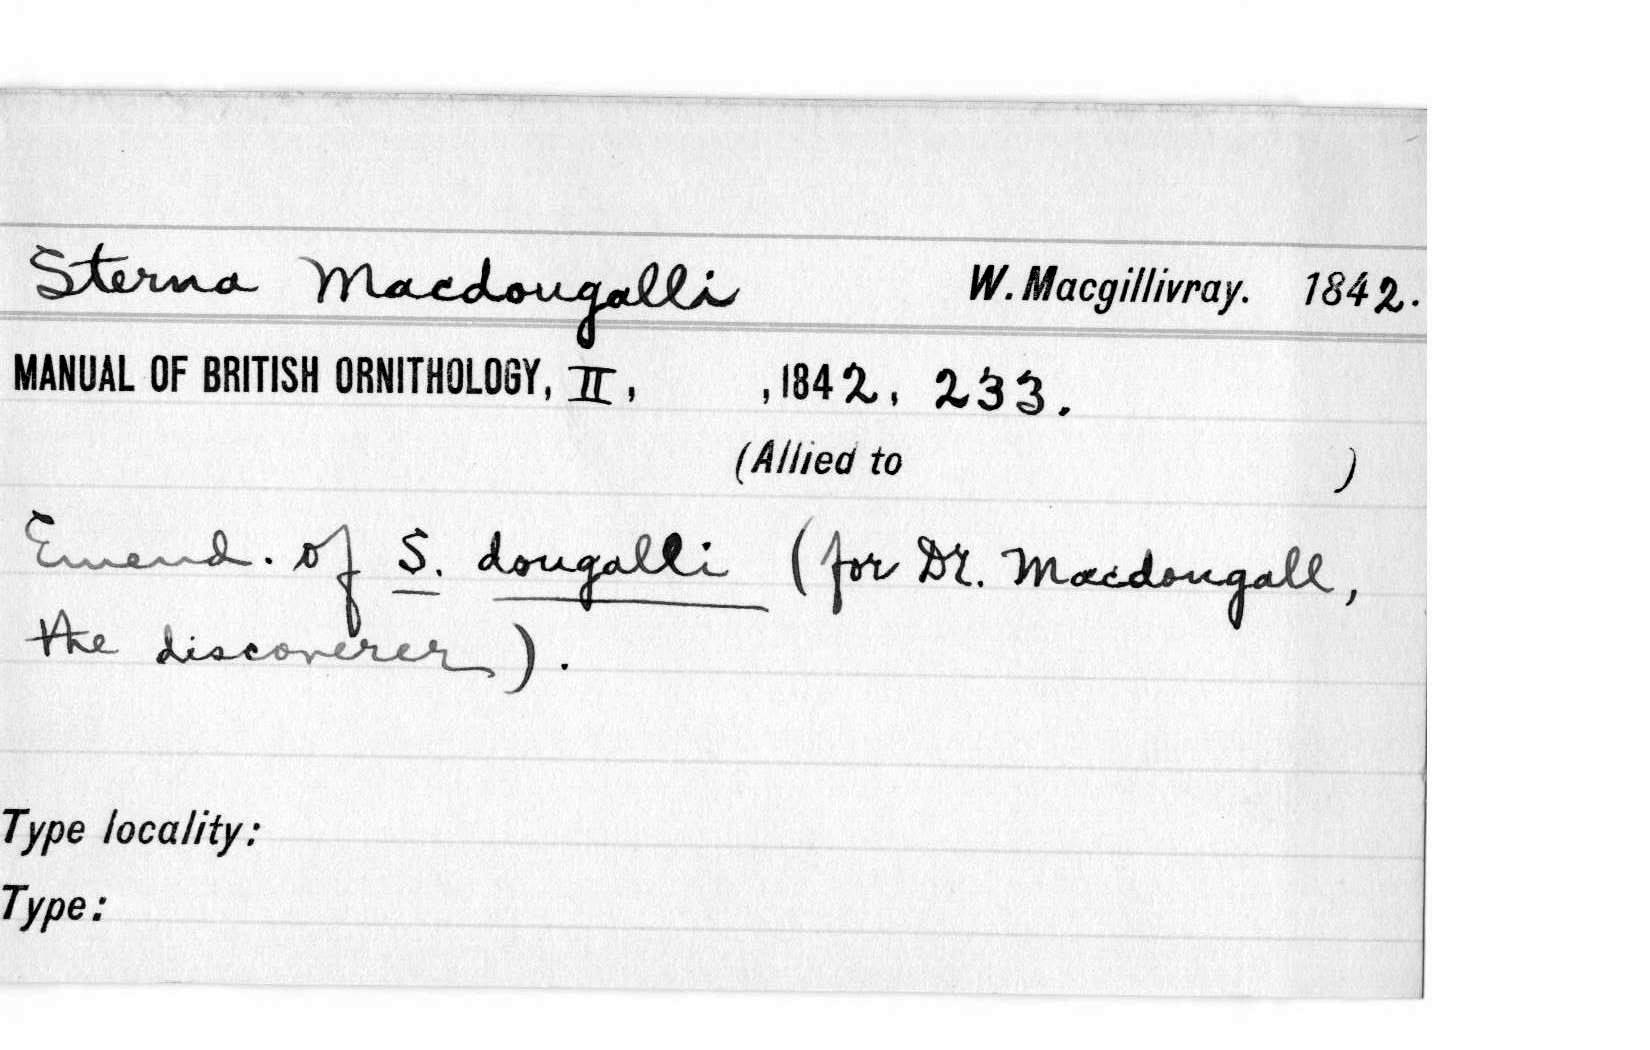 Sterna Macdougalli W. Macgillivray. 1842.
MANUAL OF BRITISH ORNITHOLOGY, II, ,1842, 233.
(Allied to )
Emend. of S. dougalli (for Dr. Macdougall,
the discoverer).
Type locality:
Type: